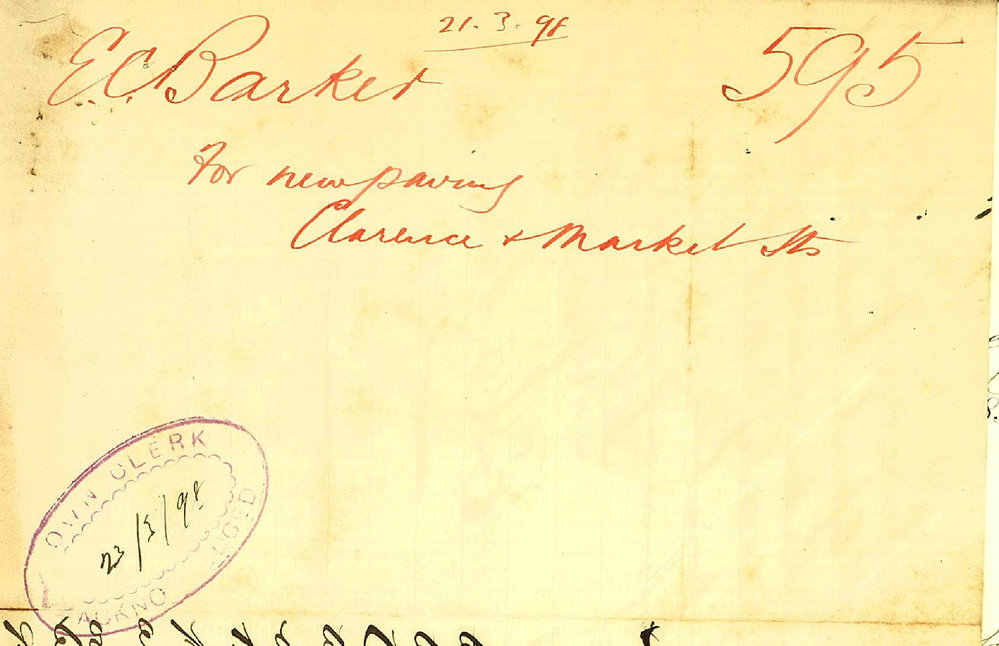 21.3.98
E.C. Barker 595
For new paving
Clarence & Market Sts
OWN CLERK
23/3/98
ACKNO LGED